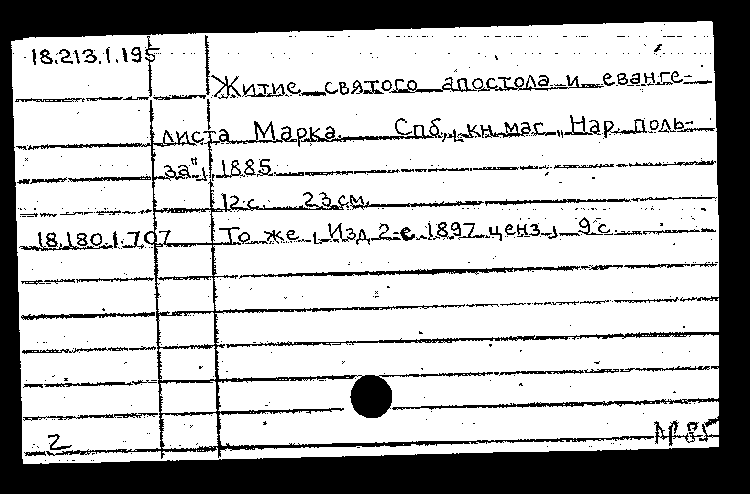 18.213.1.195
Житие святого апостола и еванге-
листа Марка. Спб, кн маг „Нар поль-
за", 1885.
12 с. 23 см.
18.180.1.707 То же, Изд 2-е. 1897 ценз, 9 с.
2
АР 85